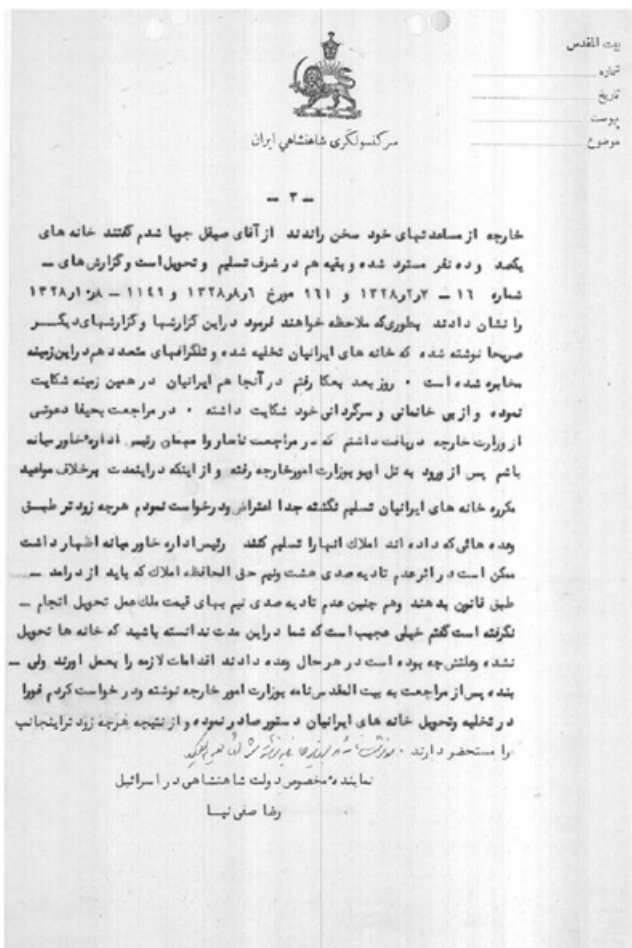 بیت المقدس
شماره
تاریخ
پیوست
موضوع
سرکنسولگری شاهنشاهی ایران
– ۳ –
خارجه از مساعدتهای خود سخن راندند از آقای صیقل جویا شدم گفتند خانه های
یکصد و ده نفر مسترد شده و بقیه هم در شرف تسلیم و تحویل است و گزارش های –
شماره ۱۶ – ۲ر۲ر۱۳۲۸ و ۹۶۱ مورخ ۶ر۸ر۱۳۲۸ و ۱۱۴۹ – ۸ر۱۰ر۱۳۲۸
را نشان دادند بطوریکه ملاحظه خواهند فرمود در این گزارشها و گزارشهای دیگر
صریحا نوشته شده که خانه های ایرانیان تخلیه شده و تلگرافهای متعدد هم در این زمینه
مخابره شده است ۰ روز بعد بعکا رفتم در آنجا هم ایرانیان در همین زمینه شکایت
نموده و از بی خانمانی و سرگردانی خود شکایت داشته ۰ در مراجعت بحیفا دعوتی
از وزارت خارجه دریافت داشتم که در مراجعت ناهار را مهمان رئیس اداره خاور میانه
باشم پس از ورود به تل اویو بوزارت امور خارجه رفته و از اینکه در اینمدت برخلاف مواعید
مکرره خانه های ایرانیان تسلیم نگشته جدا اعتراض و درخواست نمودم هرچه زودتر طبق
وعده هائی که داده اند املاک آنها را تسلیم کنند رئیس اداره خاور میانه اظهار داشت
ممکن است در اثر عدم تادیه صدی هشت و نیم حق الحافظه املاک که باید از درامد –
طبق قانون بدهند و هم چنین عدم تادیه صدی نیم بهای قیمت ملک عمل تحویل انجام –
نگرفته است گفتم خیلی عجیب است که شما در این مدت ندانسته باشید که خانه ها تحویل
نشده و علتش چه بوده است در هر حال وعده دادند اقدامات لازمه را بعمل اورند ولی –
بنده پس از مراجعت به بیت المقدس نامه بوزارت امور خارجه نوشته و در خواست کردم فورا
در تخلیه و تحویل خانه های ایرانیان دستور صادر نموده و از نتیجه هرچه زودتر اینجانب
را مستحضر دارند ۰
نماینده مخصوص دولت شاهنشاهی در اسرائیل
رضا صفی نیا